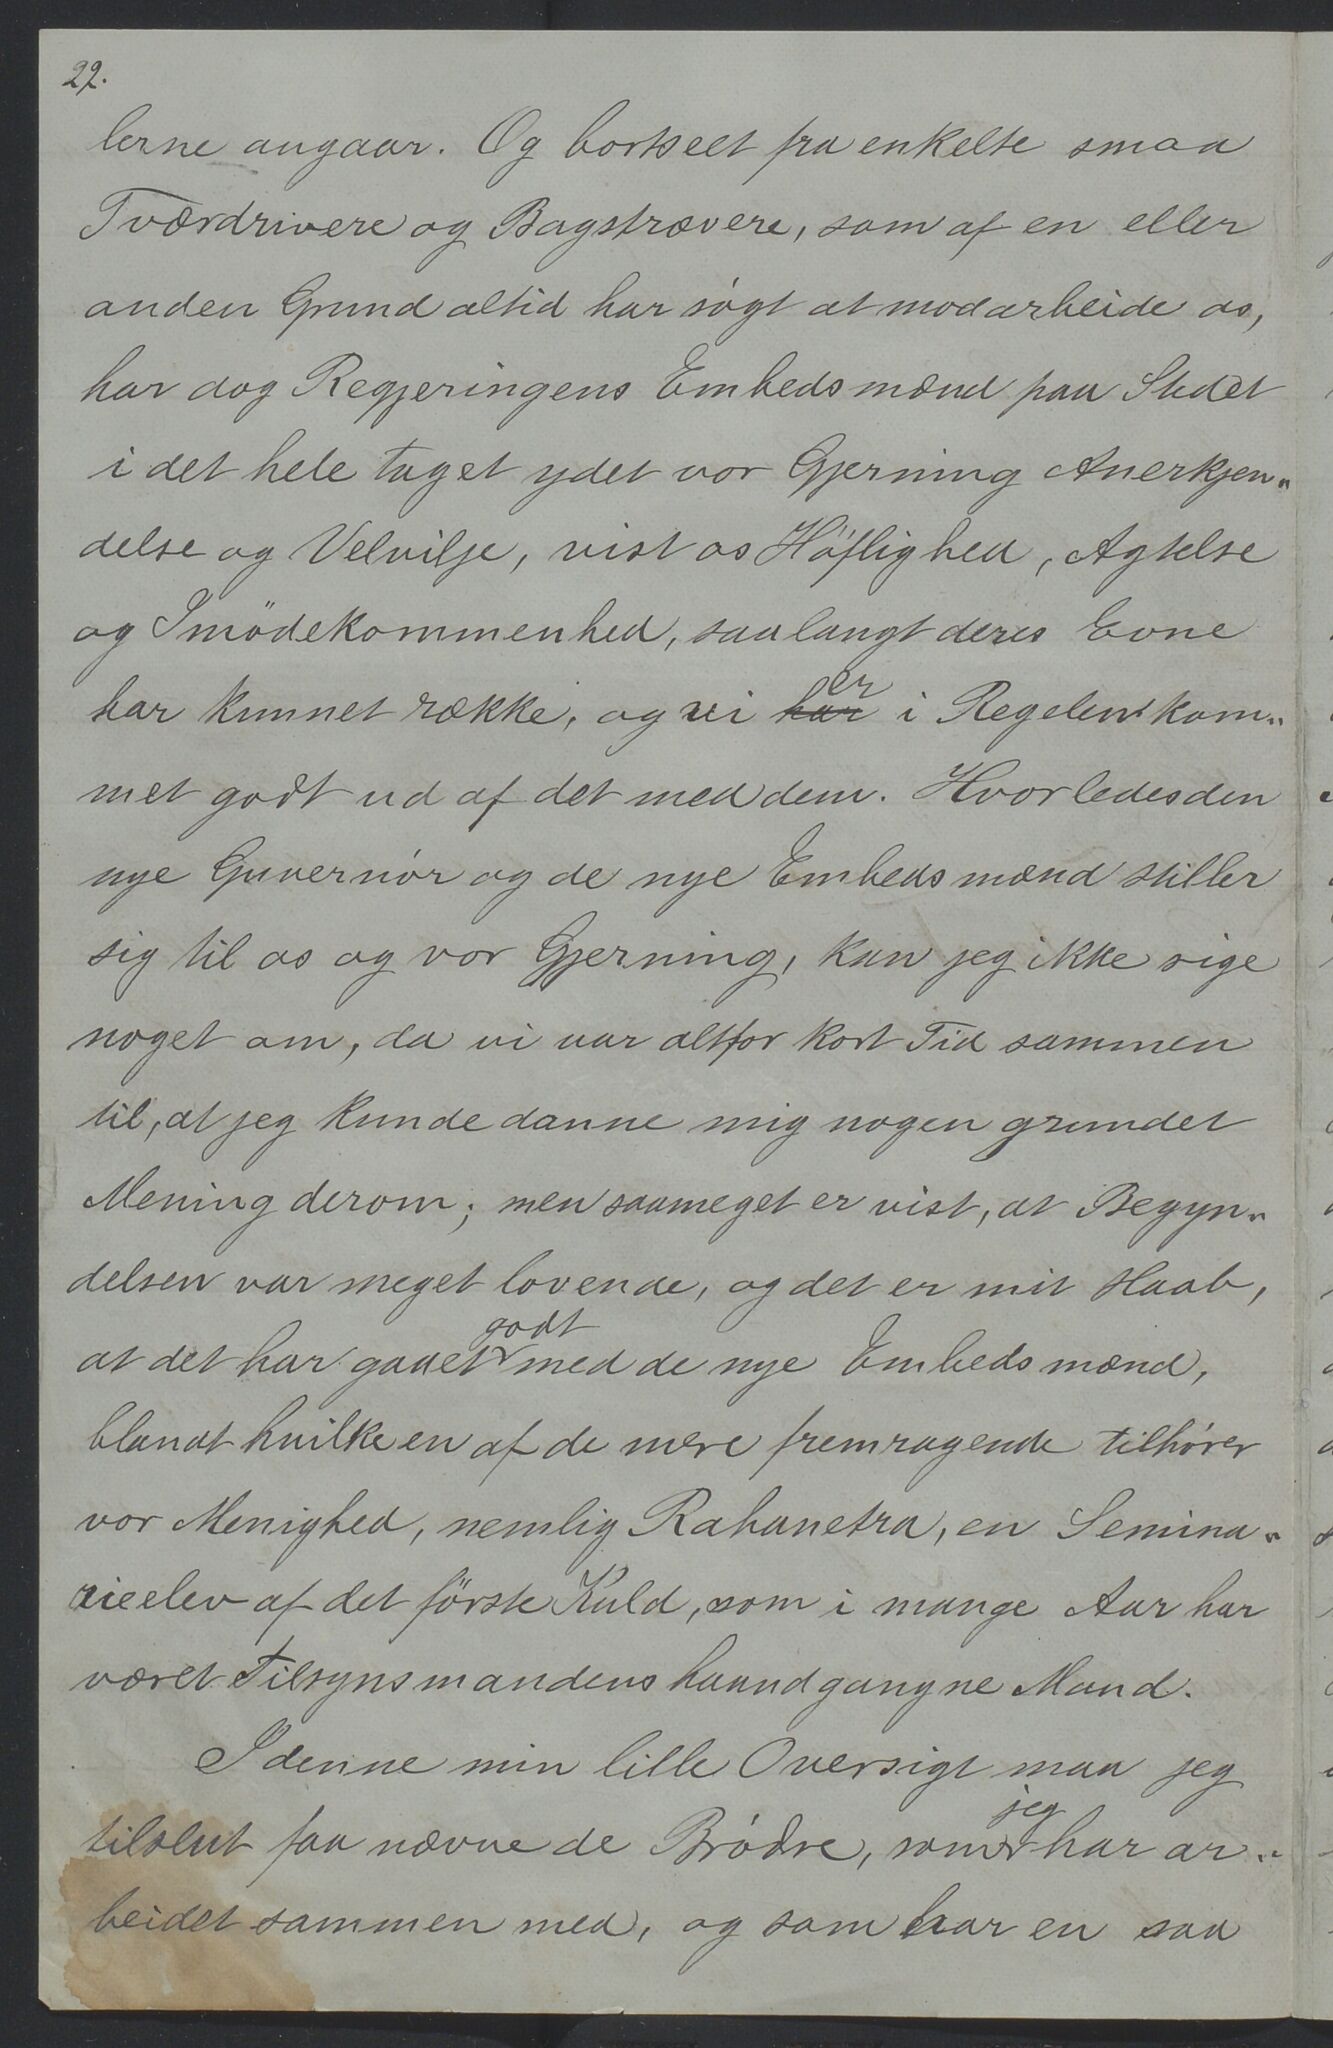 22.
lerne angaar. Og bortseet fra enkelte smaa
Tværdrivere og Bagstrævere, som af en eller
anden Grund altid har søgt at modarbeide os,
har dog Regjeringens Embedsmænd paa Stedet
i det hele taget ydet vor Gjerning Anerkjen„
delse og Velvilje, vist os Høflighed, Agtelse
og Imødekommenhed, saalangt deres Evne
har kunnet række, og vi har er i Regelen kom„
met godt ud af det med dem. Hvorledes den
nye Guvernør og de nye Embedsmænd stiller
sig til os og vor Gjerning, kan jeg ikke sige
noget om, da vi var altfor kort Tid sammen
til, at jeg kunde danne mig nogen grundet
Mening derom; men saameget er vist, at Begyn„
delsen var meget lovende, og det er mit Haab,
at det har gaaet godt med de nye Embedsmænd,
blandt hvilke en af de mere fremragende tilhører
vor Menighed, nemlig Rahanetra, en Semina„
rieelev af det første Kuld, som i mange Aar har
været Tilsynsmandens haandgangne Mand.
I denne min lille Oversigt maa jeg
tilslut faa nævne de Brødre, som jeg har ar„
beidet sammen med, og som har en saa